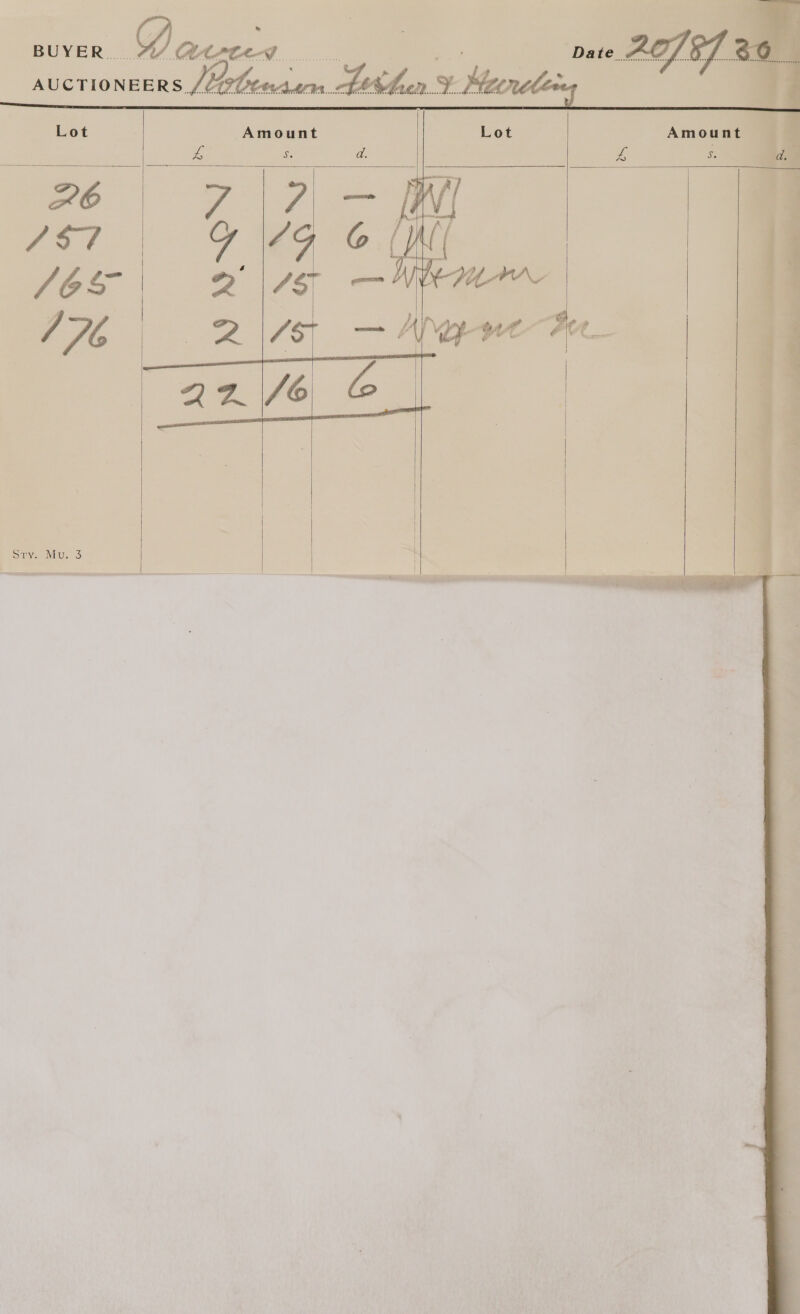 BUYER Davies Date 20/8/30
AUCTIONEERS Robinson Fisher & Harding
Lot Amount Lot Amount
£ s. d. £ s. d.
26 7 7 —
157 9 19 6
165 2 15 —
176 2 15 —
22 16 6
Sty. Mu. 3